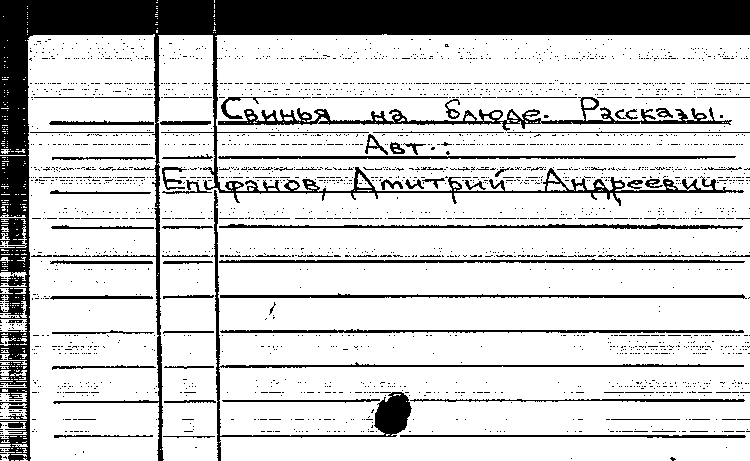 Свинья на блюде. Рассказы.
Авт.:
Епифанов, Дмитрий Андреевич